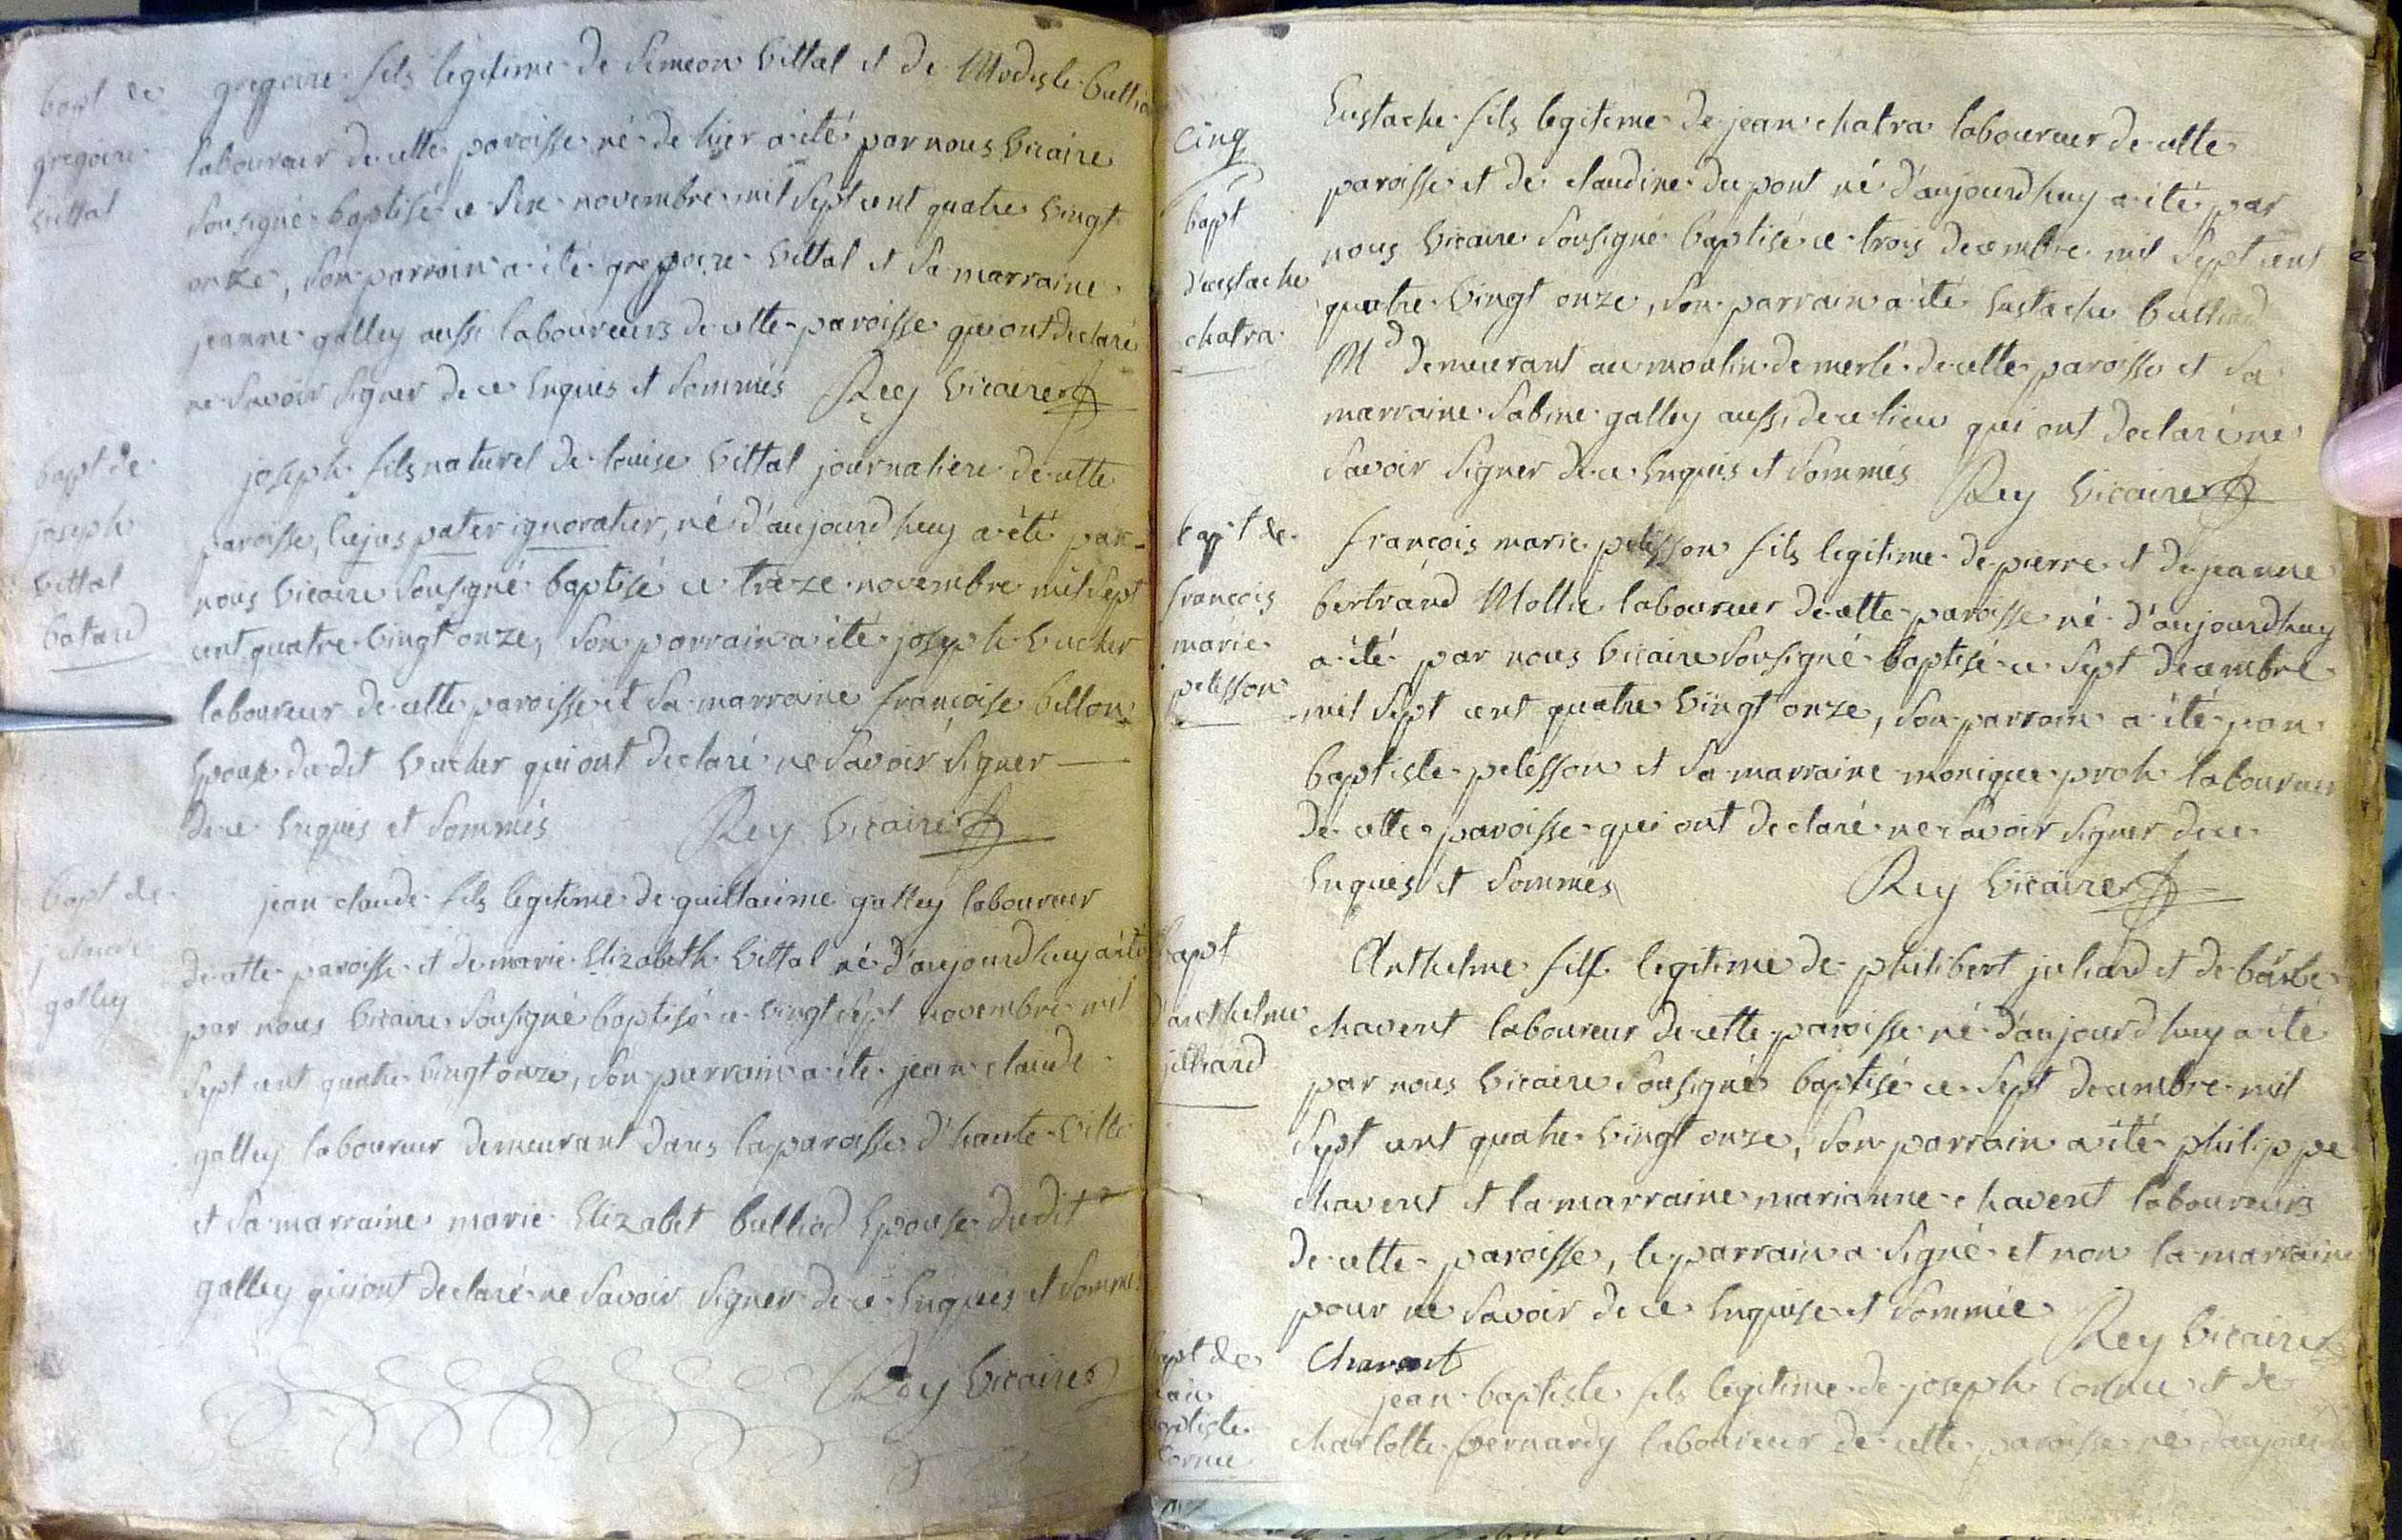 bapt de
gregoire
vittal
gregoire fils legitime de Simeon vittal et de Modeste
laboureur de cette paroisse né de hier a été par nous vicaire
sousigné baptisé ce six novembre mil sept cent quatre vingt
onze, son parrain a été gregoire vittal et sa marraine
jeanne galley aussi laboureurs de cette paroisse qui ont declaré
ne savoir signer de ce enquis et sommés Rey vicaire
bapt de
joseph
vittal
batard
joseph fils naturel de louise vittal journaliere de cette
paroisse, cujus pater ignoratur, né d'aujourdhuy a été par
nous vicaire sousigné baptisé ce treze novembre mil sept
cent quatre vingt onze, son parrain a été joseph bucher
laboureur de cette paroisse et sa marraine françoise billon
epouse dudit bucher qui ont declaré ne savoir signer
de ce enquis et sommés Rey vicaire
bapt de
j claude
galley
jean claude fils legitime de guillaume galley laboureur
de cette paroisse et de marie Elizabeth vittal né d'aujourdhuy a été
par nous vicaire sousigné baptisé ce vingt sept novembre mil
sept cent quatre vingt onze, son parrain a été jean claude
galley laboureur demeurant dans la paroisse d'haute ville
et sa marraine marie Elizabet bulliod epouse dudit
galley qui ont declaré ne savoir signer de ce enquis et sommé
Rey vicaire
cinq
bapt
d'eustache
chatra
Eustache fils legitime de jean chatra laboureur de cette
paroisse et de claudine dupont né d'aujourdhuy a été par
nous vicaire sousigné baptisé ce trois decembre mil sept cent
quatre vingt onze, son parrain a été Eustache
Md demeurant au moulin de merlé de cette paroisse et sa
marraine sabine galley aussi de ce lieu qui ont declaré ne
savoir signer de ce enquis et sommés Rey vicaire
bapt de
françois
marie
pelisson
françois marie pelisson fils legitime de pierre et de jeanne
bertrand Mollie laboureur de cette paroisse né d'aujourdhuy
a été par nous vicaire sousigné baptisé ce sept decembre
mil sept cent quatre vingt onze, son parrain a été jean
baptiste pelisson et sa marraine monique proh laboureur
de cette paroisse qui ont declaré ne savoir signer de ce
enquis et sommés Rey vicaire
bapt
d'anthelme
julliard
Anthelme fils legitime de philibert juliard et de barbe
chavent laboureur de cette paroisse né d'aujourdhuy a été
par nous vicaire sousigné baptisé ce sept decembre mil
sept cent quatre vingt onze, son parrain a été philippe
chavent et la marraine marianne chavent laboureurs
de cette paroisse, le parrain a signé et non la marraine
pour ne savoir de ce enquise et sommée
Rey vicaire
Chavent
bapt de
jean
baptiste
cornu
jean baptiste fils legitime de joseph cornu et de
charlotte bernardy laboureur de cette paroisse né d'aujour